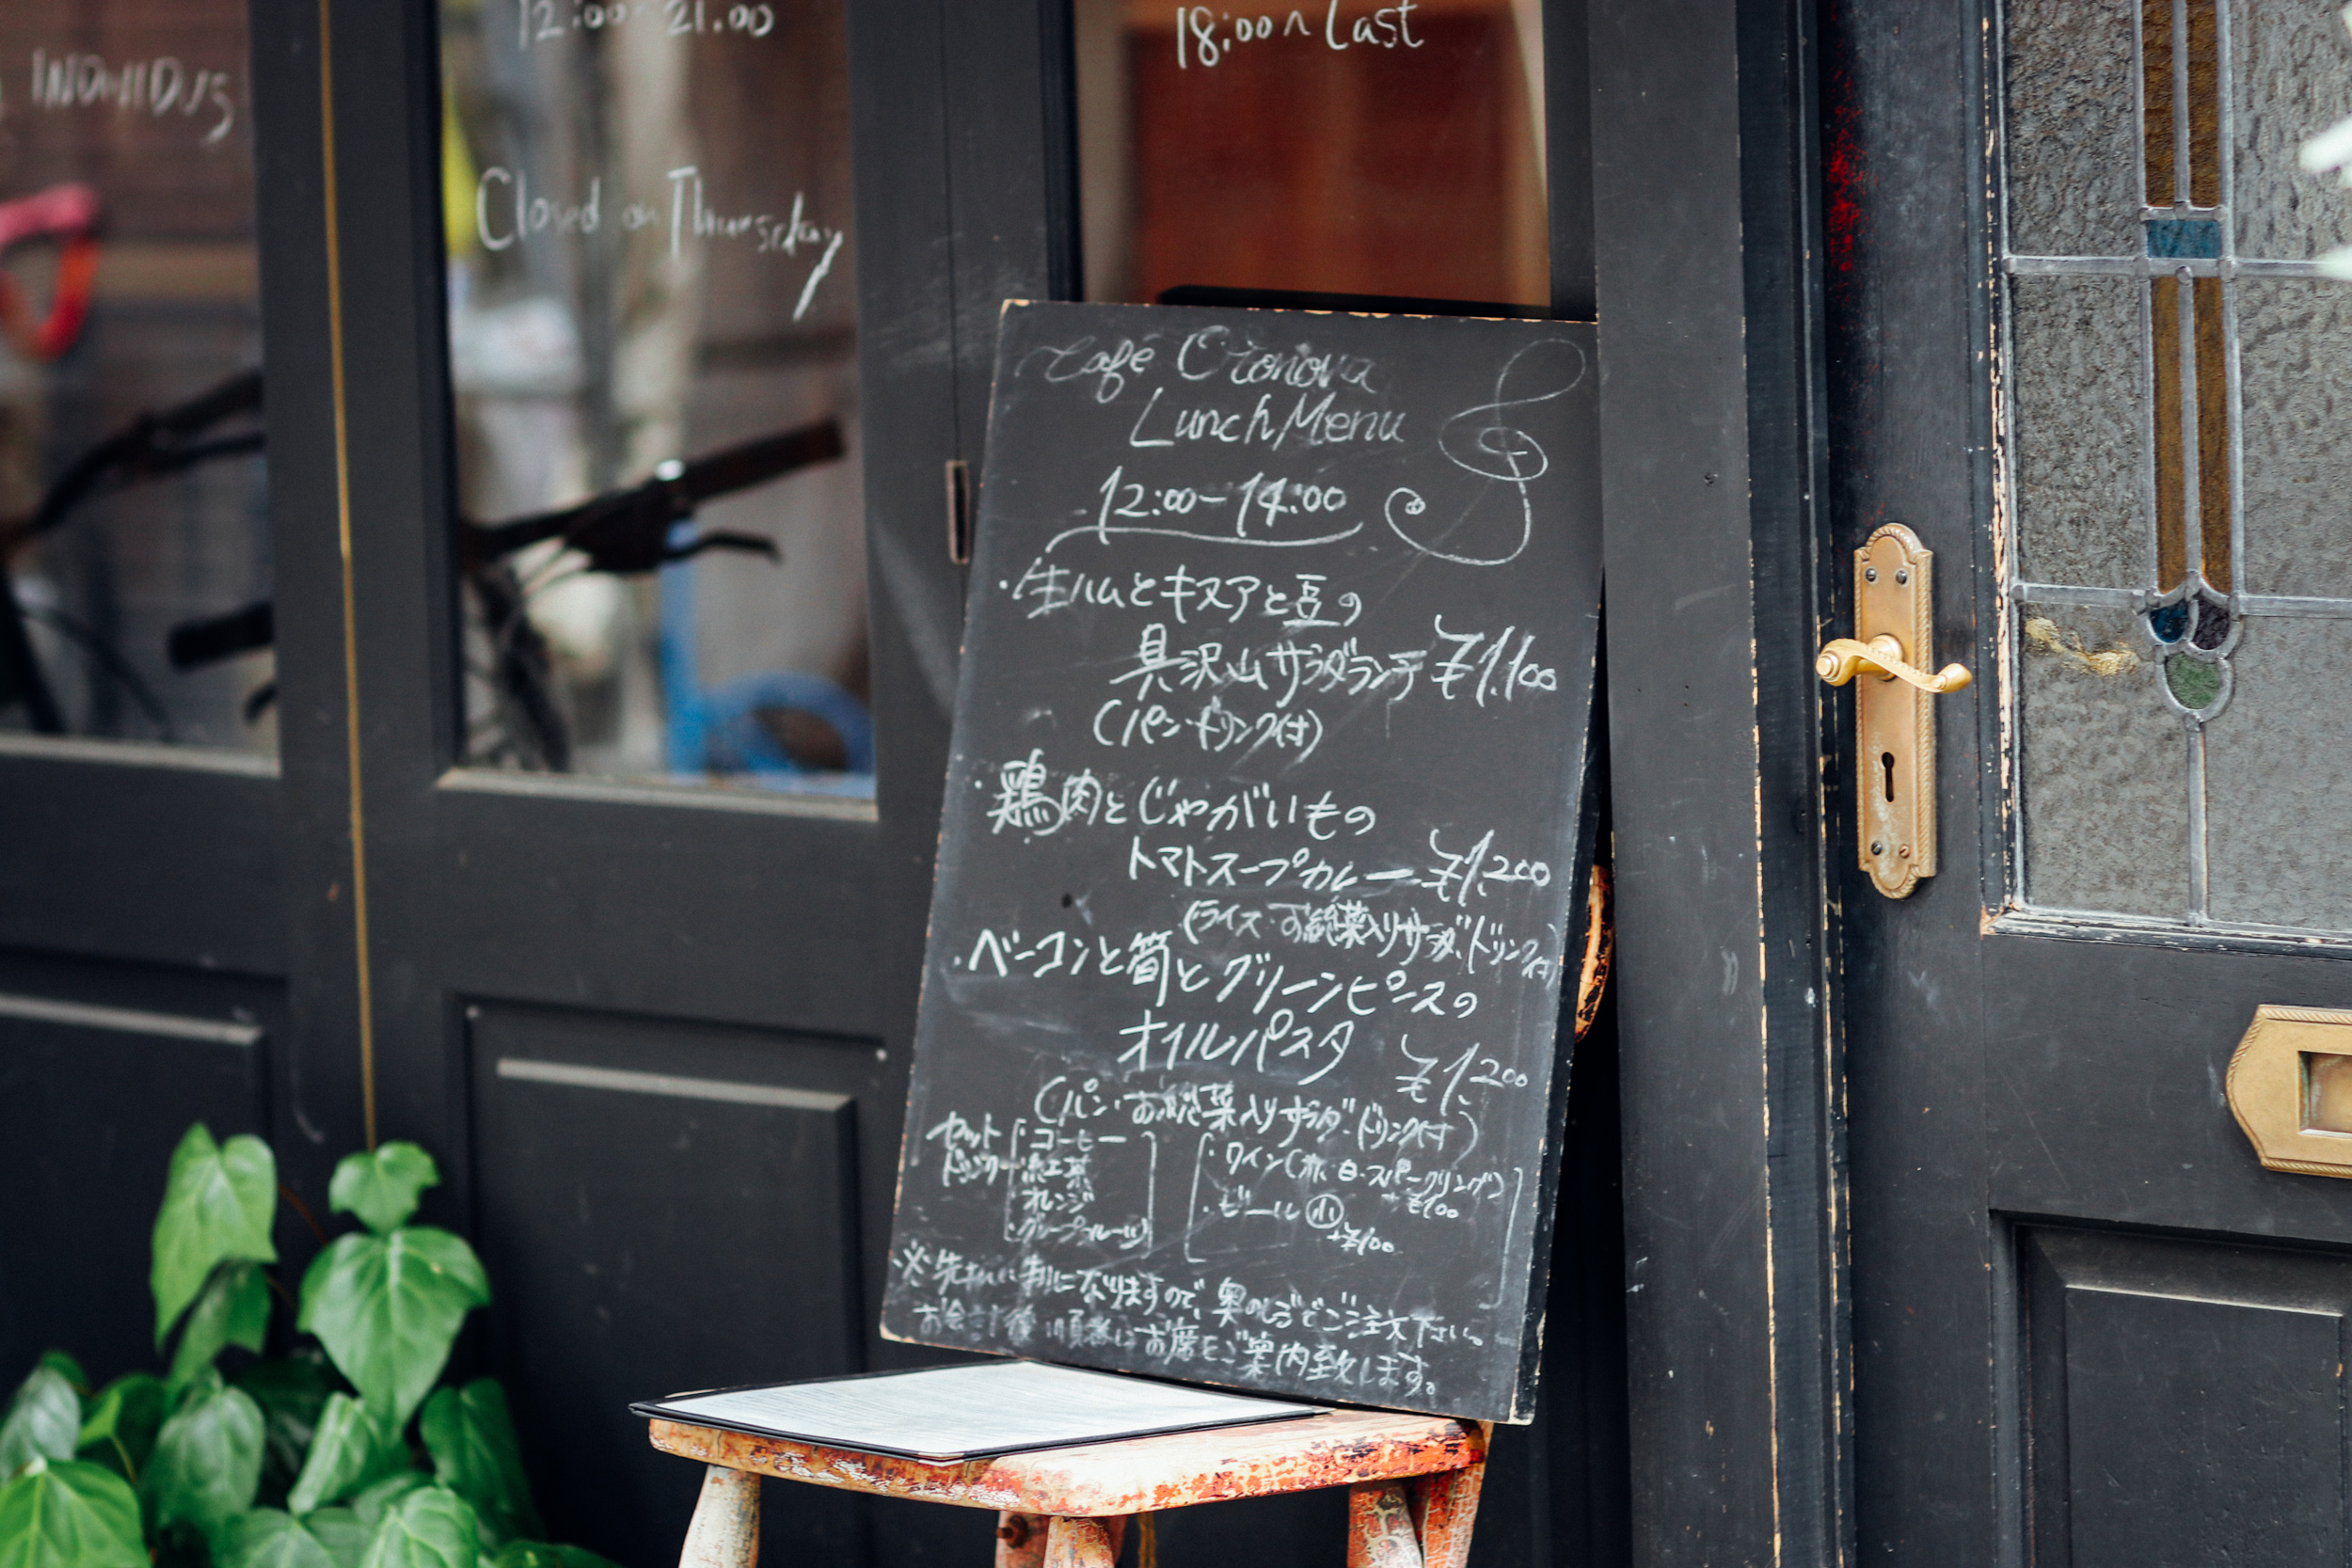 12:00 - 21.00
18:00~Last
Closed on Thursday
Café Otonova
Lunch Menu
12:00-14:00
・生ハムとキヌアと豆の
具沢山サラダランチ ¥1.100
(パン・ドリンク付)
・鶏肉とじゃがいもの
トマトスープカレー ¥1.200
(ライス・お総菜入りサラダ・ドリンク付)
・ベーコンと筍とグリーンピースの
オイルパスタ ¥1.200
(パン・お総菜入りサラダ・ドリンク付)
セットドリンク
・コーヒー
紅茶
オレンジ
・グレープフルーツ
・ワイン(赤・白・スパークリング)
+¥100
・ビール小
+¥100
※先払い制になりますので、奥のレジでご注文下さい。
お会計後 順番にお席をご案内致します。